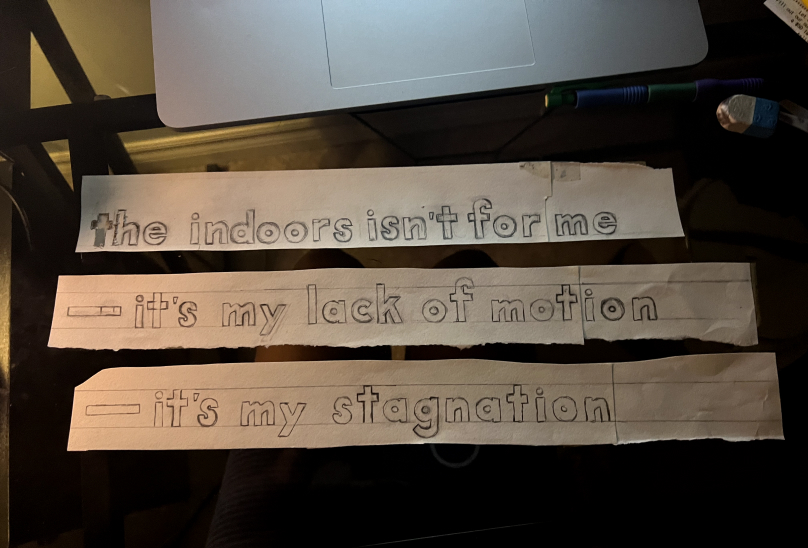 the indoors isn't for me
— it's my lack of motion
— it's my stagnation